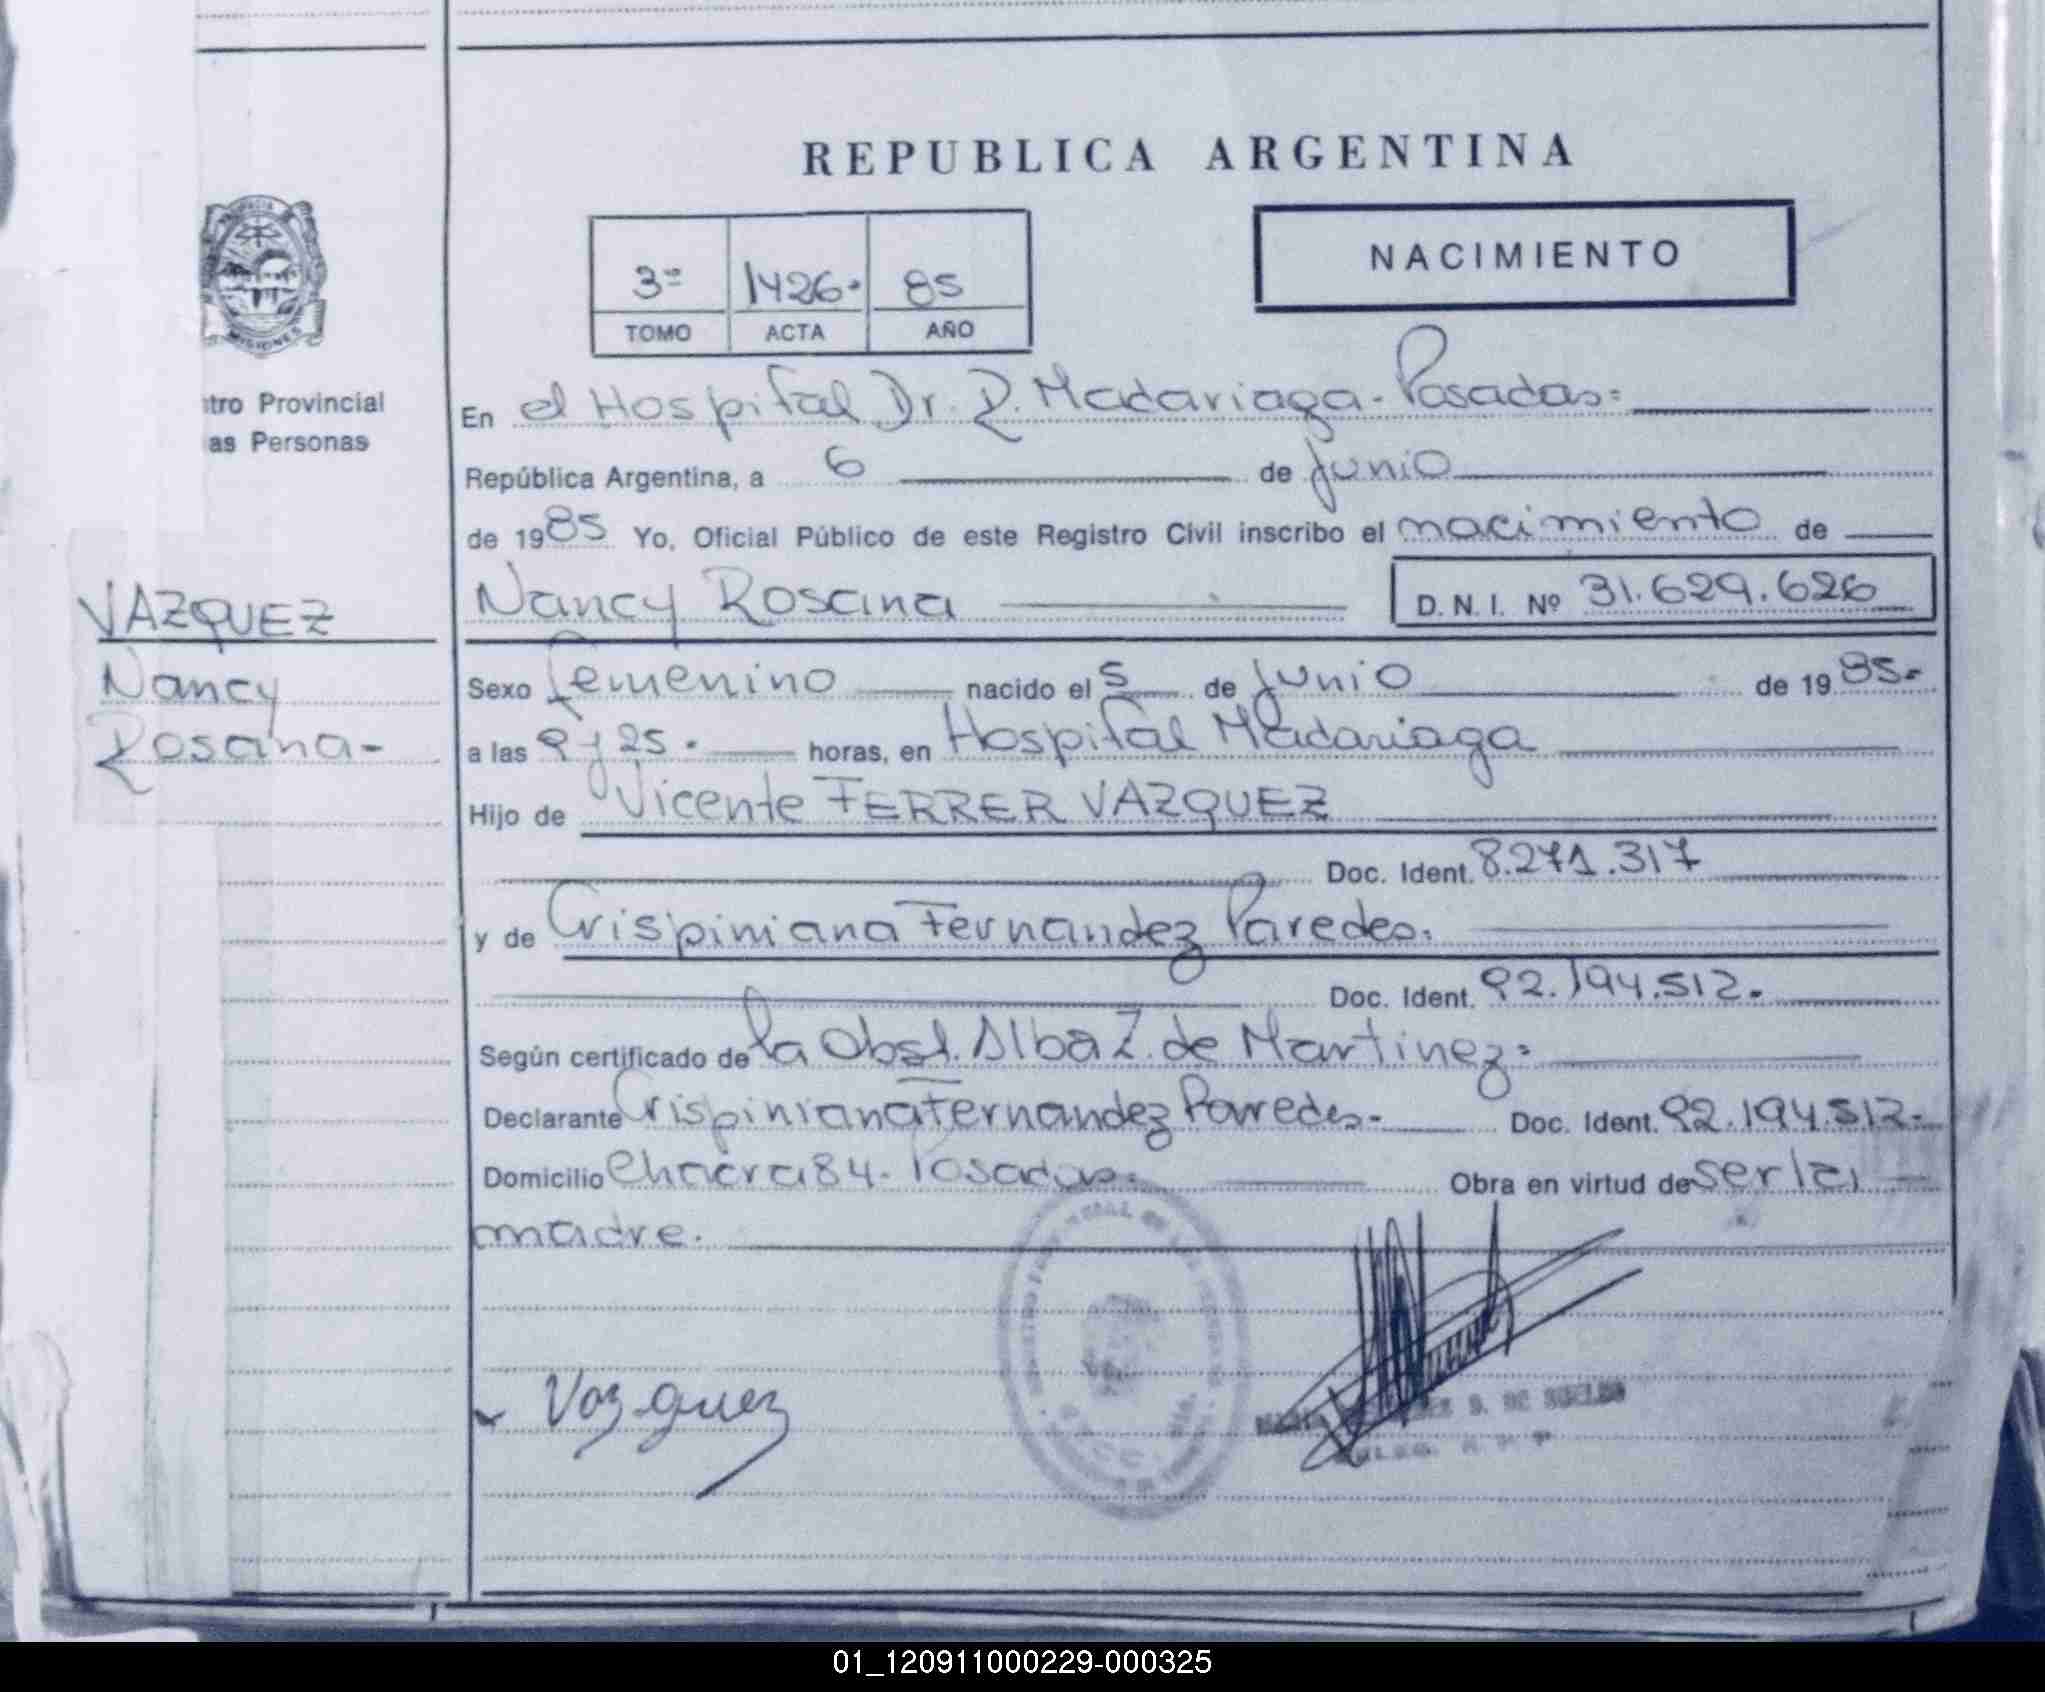 REPUBLICA ARGENTINA
NACIMIENTO
3º 1426. 85
TOMO ACTA AÑO
PROVINCIA
MISIONES
tro Provincial
as Personas
VAZQUEZ
Nancy
Rosana-
En el Hospital Dr. R. Madariaga-Posadas=
República Argentina, a 6 de junio
de 1985 Yo, Oficial Público de este Registro Civil inscribo el nacimiento de
Nancy Rosana D. N. I. Nº 31.629.626
Sexo femenino nacido el 5 de junio de 1985.
a las 9 y 25. horas, en Hospital Madariaga
Hijo de Vicente FERRER VAZQUEZ
Doc. Ident. 8.271.317
y de Crispiniana Fernandez Paredes.
Doc. Ident. 92.194.512.
Según certificado de la Obst. Alba Z. de Martinez.
Declarante Crispiniana Fernandez Paredes. Doc. Ident. 92.194.512.
Domicilio Chacra 84- Posadas. Obra en virtud de ser la
madre.
Vazquez
01_120911000229-000325